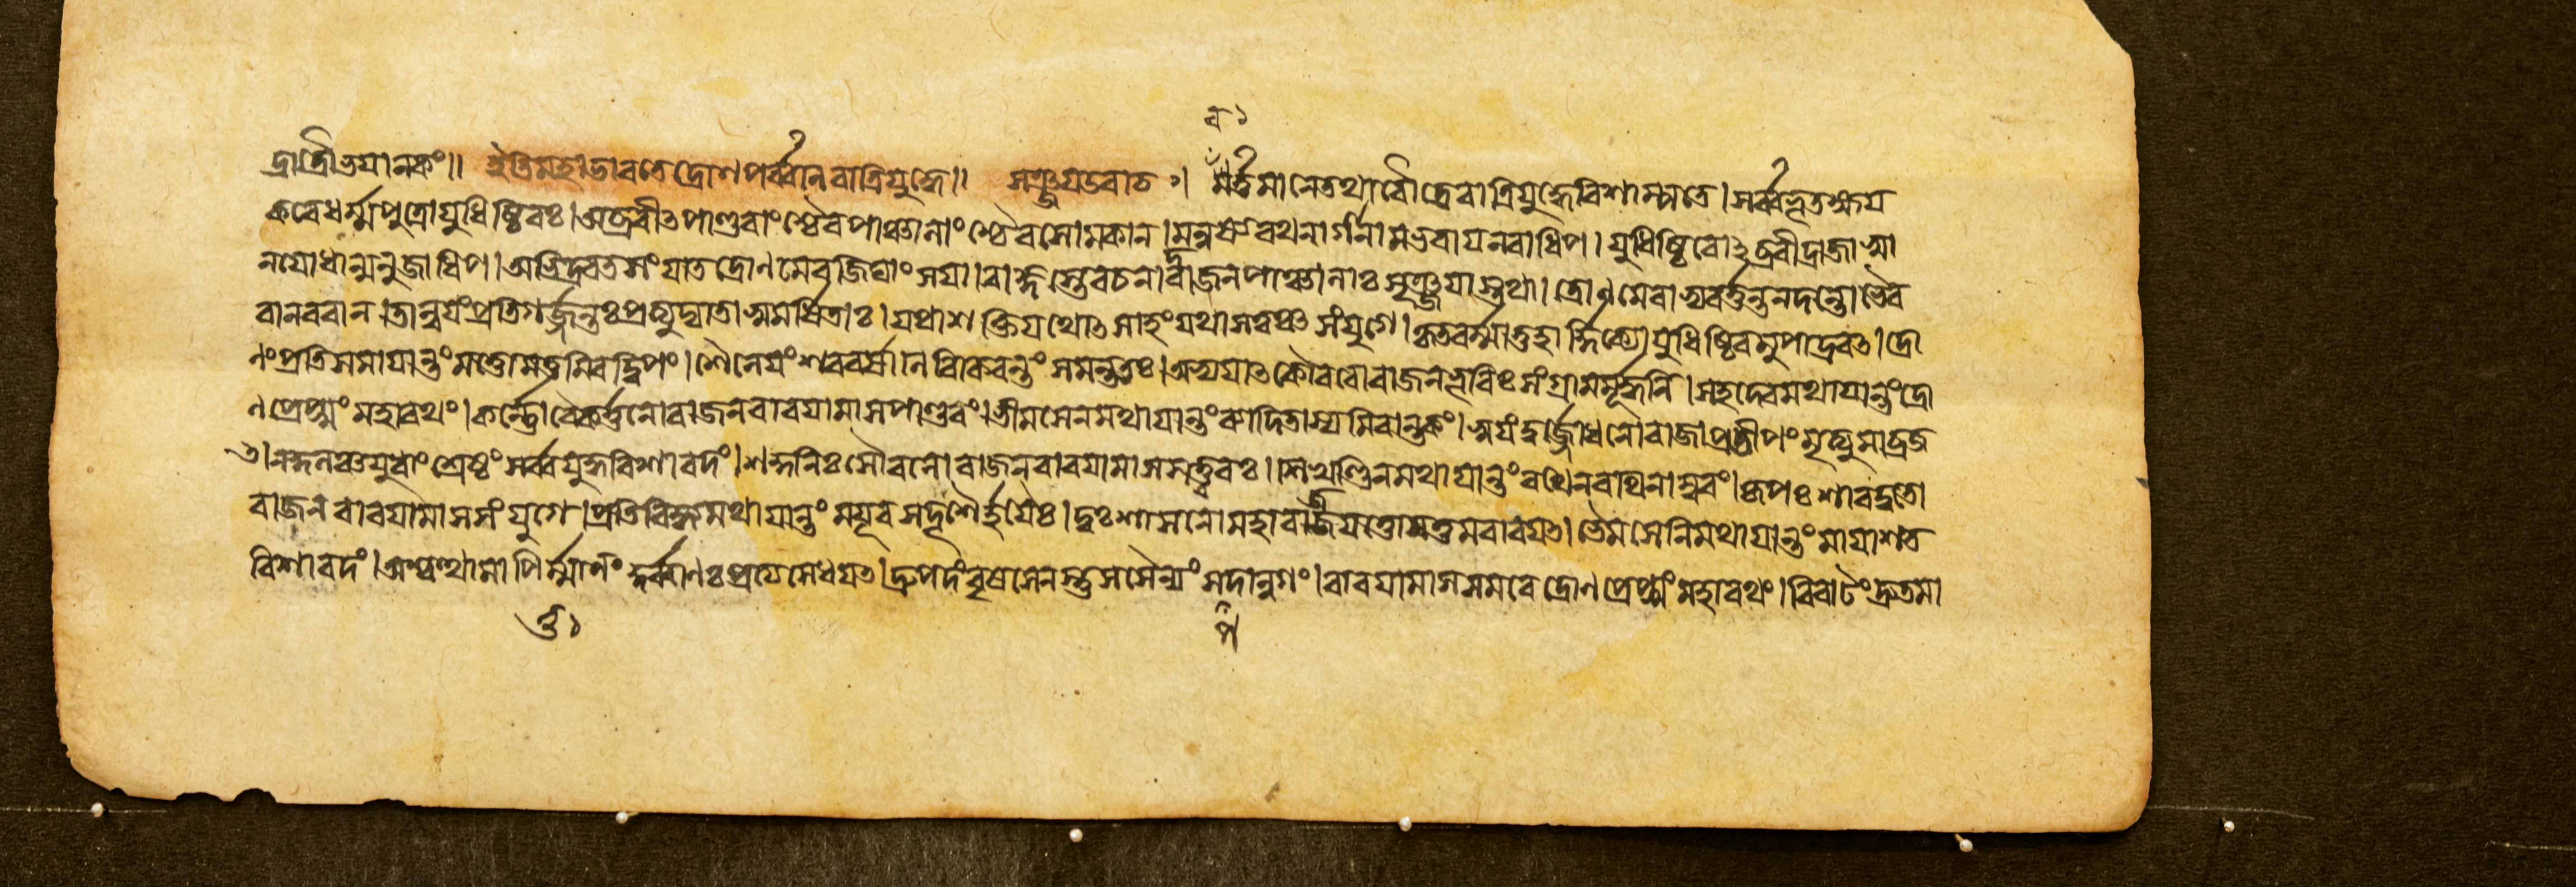 ৰ১
দ্রাত্রৌভয়ানকং॥ ইতিমহাভাৰতেদ্রোণপর্ব্বনিৰাত্রিযুদ্ধে॥ সঞ্জয়উবাচ।। বর্ত্তমানেতথাৰৌদ্রেৰাত্রিযুদ্ধেবিশাম্পতে।সর্ব্বভূতক্ষয়
কৰেধর্ম্মপুত্রোযুধিষ্ঠিৰঃ।অব্রবীৎপাণ্ডবাংশ্চৈবপাঞ্চানাংশ্চৈবসোমকান।
যুধিষ্ঠিৰোঽব্রবীদ্রাজাআ
নযোধান্মনুজাধিপ।অভিদ্রবতসংযাতদ্রোণমেবজিঘাংসয়া।ৰাজ্ঞস্তেবচনাৰ্দ্ৰাজনপাঞ্চানাঃসৃঞ্জয়াস্তথা।দ্রোণমেবাভ্যবর্ত্তন্তনদন্তোভৈৰ
বানৰবান।তান্বয়ংপ্রতিগর্জ্জন্তঃপ্রত্যুদ্যাতাঅমর্ষিতাঃ।যথাশক্তিযথোৎসাহংযথাসত্বঞ্চসংযুগে।কৃতবর্ম্মাতুহার্দ্দিক্যোযুধিষ্ঠিৰমুপাদ্রবত।দ্রো
ণংপ্রতিসমাযান্তংমত্তোমত্তমিবদ্বিপং।শৈনেয়ংশৰবর্ষানিবিকিৰন্তংসমন্ততঃ।অভ্যয়াৎকৌৰবোৰাজনভূৰিঃসংগ্রামমূর্দ্ধনি।সহদেবমথাযান্তংদ্রো
ণপ্রেপ্সুংমহাৰথং।কর্ন্নোবৈকর্ত্তনোৰাজনবাৰয়ামাসপাণ্ডবং।ভীমসেনমথাযান্তংব্যাদিতাস্যমিবান্তকং।স্বয়ংদুর্জ্জোধনোৰাজাপ্রতীপংমৃত্যুমাব্রজ
ত।নকুলঞ্চযুধাংশ্রেষ্ঠংসর্ব্বযুদ্ধবিশাৰদং।শকুনিঃসৌবলোৰাজনবাৰয়ামাসসত্ত্বৰঃ।শিখণ্ডিনমথাযান্তংৰথেনৰথিনাম্বৰং।কৃপঃশাৰদ্বতো
ৰাজনবাৰয়ামাসসংযুগে।প্রতিবিন্ধ্যমথাযান্তংময়ূৰসদৃশৈর্হয়ৈঃ।দুঃশাসনোমহাৰাজযত্তোযত্তমবাৰয়ত।ভৈমসেনিমথাযান্তংমায়াশত
বিশাৰদং।অশ্বত্থামা
দ্রুপদংবৃষসেনস্তুসসৈন্যংসদানুগং।বাৰয়ামাসসমৰেদ্রোণপ্রেপ্সুংমহাৰথং।বিৰাটংদ্রুতমা